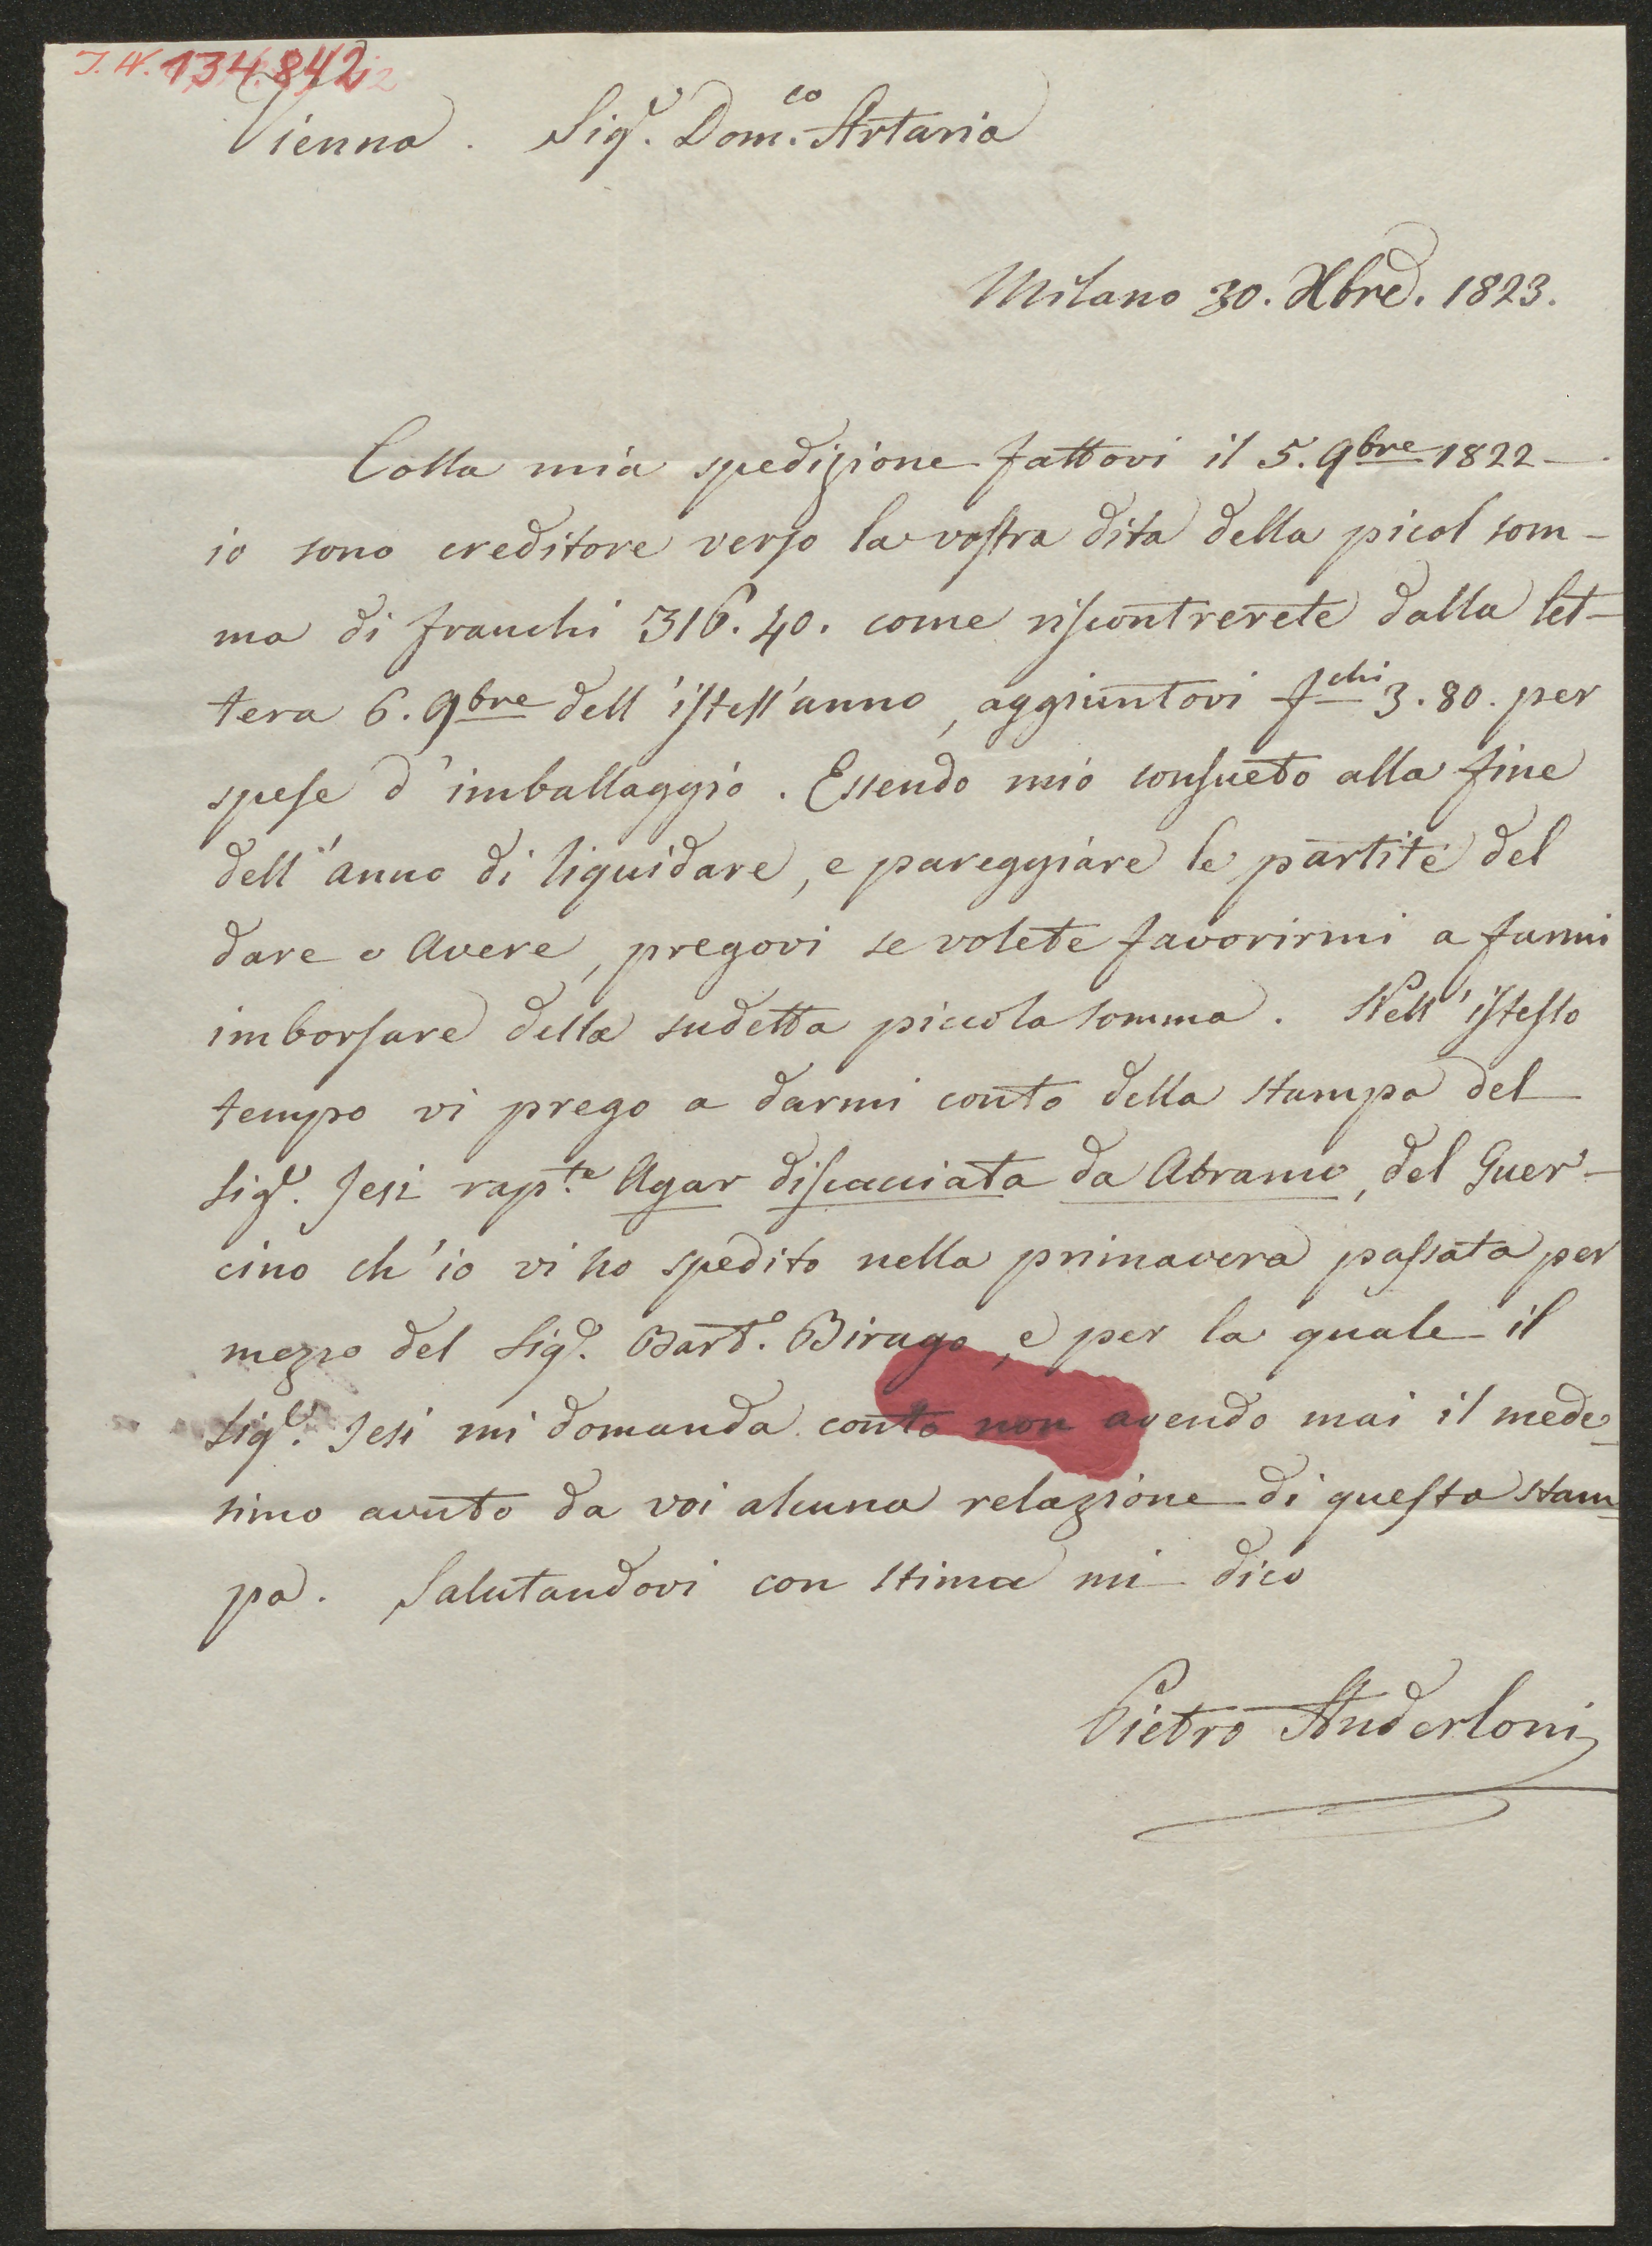 I.N. 134.842
Vienna. Sigr. Dom.co Artaria
Milano 30. Xbre. 1823.
Colla mia spedizione fattovi il 5. 9bre 1822 —
io sono creditore verso la vostra dita della picol som-
ma di franchi 316. 40. come riscontrerete dalla let-
tera 6. 9bre dell'istess'anno, aggiuntovi fchi 3. 80. per
spese d'imballaggio. Essendo mio consueto alla fine
dell'anno di liquidare, e pareggiare le partite del
dare e Avere, pregovi se volete favorirmi a farmi
imborsare della sudetta piccola somma. Nell'istesso
tempo vi prego a darmi conto della stampa del
Sigr. Jesi rap.te Agar discacciata da Abramo, del Guer-
cino ch'io vi ho spedito nella primavera passata per
mezzo del Sigr. Bart.o Birago, e per la quale il
Sigr. Jesi mi domanda conto non avendo mai il mede-
simo avuto da voi alcuna relazione di questa stam-
pa. Salutandovi con stima mi dico
Pietro Anderloni